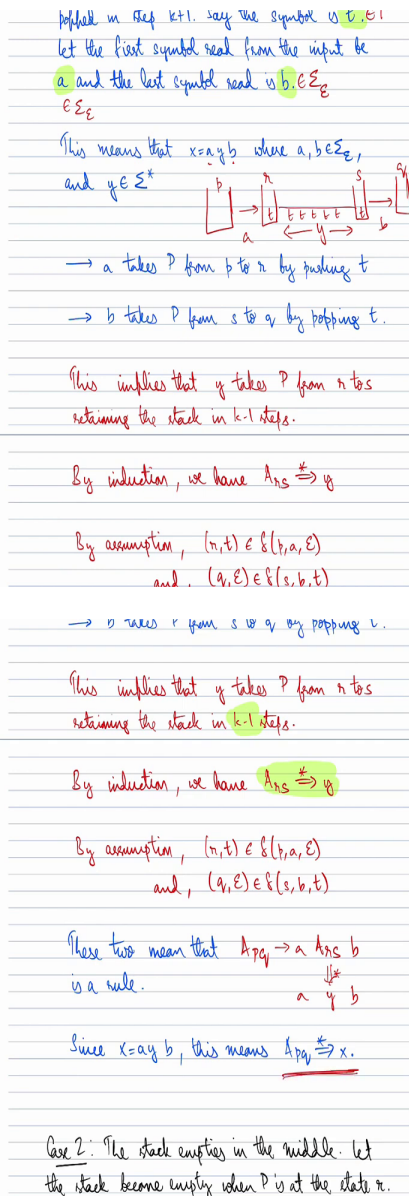 popped in step k+1. Say the symbol is t. ∈ Γ
Let the first symbol read from the input be
a and the last symbol read is b. ∈ Σ_ε
∈ Σ_ε
This means that x = a y b where a, b ∈ Σ_ε,
and y ∈ Σ*
p r s q
t t t t t t t
a ← y → b
→ a takes P from p to r by pushing t
→ b takes P from s to q by popping t.
This implies that y takes P from r to s
retaining the stack in k-1 steps.
By induction, we have A_rs ⇒* y
By assumption, (r, t) ∈ δ(p, a, ε)
and, (q, ε) ∈ δ(s, b, t)
→ b takes P from s to q by popping t.
This implies that y takes P from r to s
retaining the stack in k-1 steps.
By induction, we have A_rs ⇒* y
By assumption, (r, t) ∈ δ(p, a, ε)
and, (q, ε) ∈ δ(s, b, t)
These two mean that A_pq → a A_rs b
is a rule. ⇓*
a y b
Since x = a y b, this means A_pq ⇒* x.
Case 2: The stack empties in the middle. Let
the stack become empty when P is at the state r.